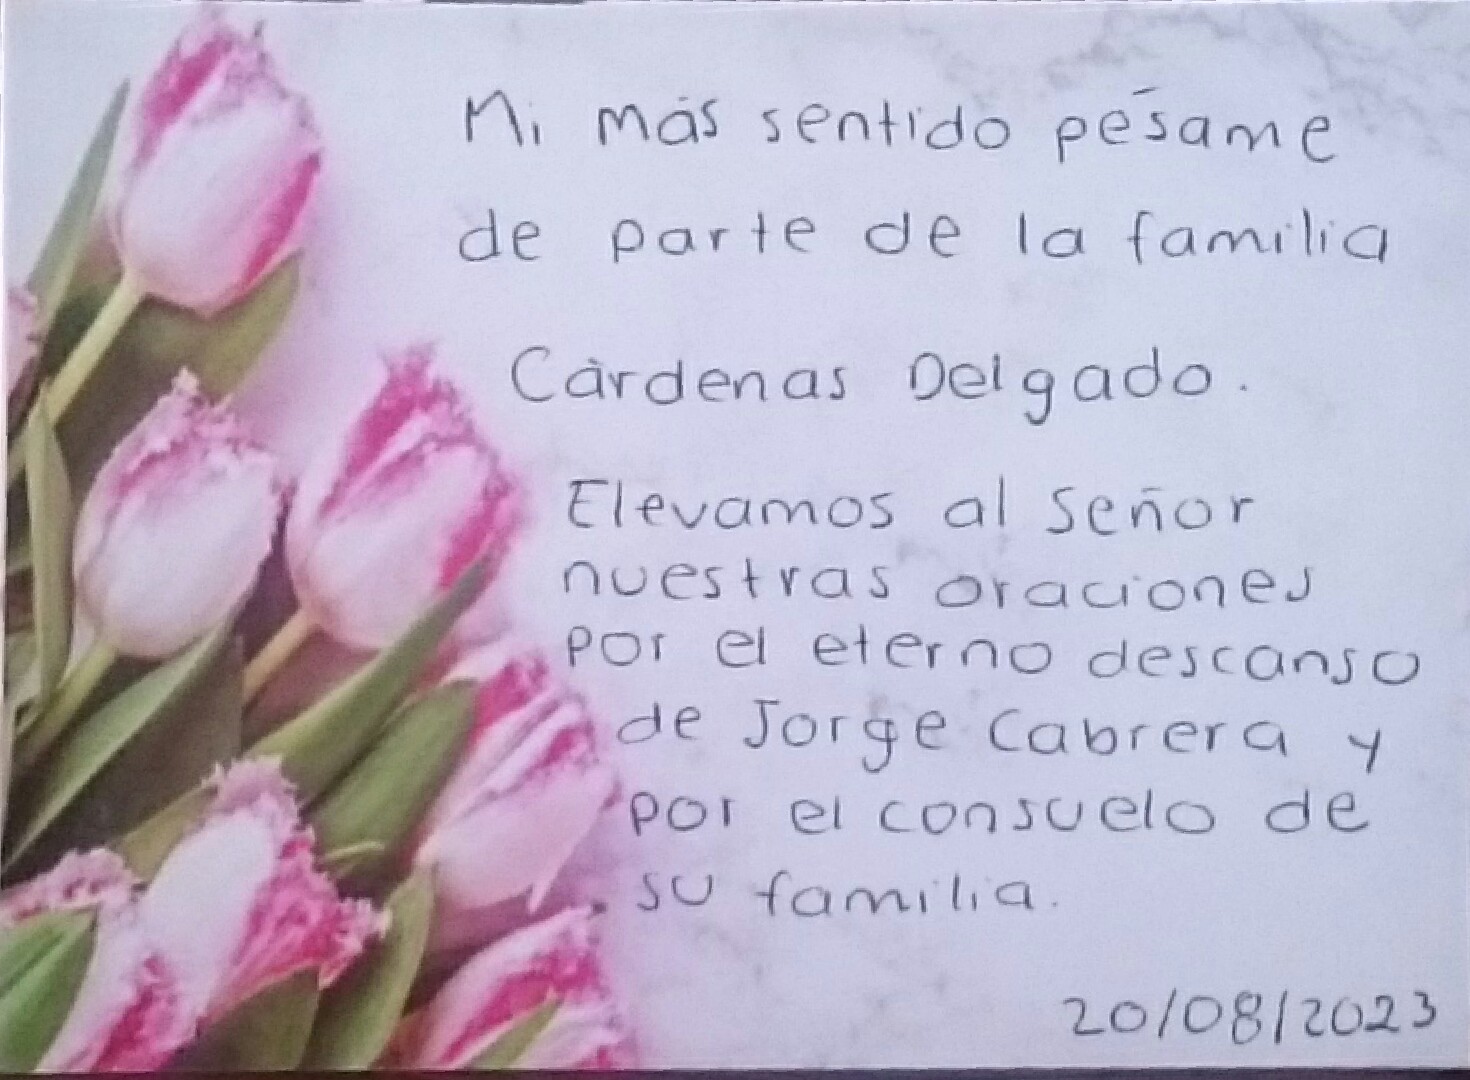 Mi más sentido pésame
de parte de la familia
Càrdenas Delgado.
Elevamos al señor
nuestras oraciones
por el eterno descanso
de Jorge Cabrera y
por el consuelo de
su familia.
20/08/2023